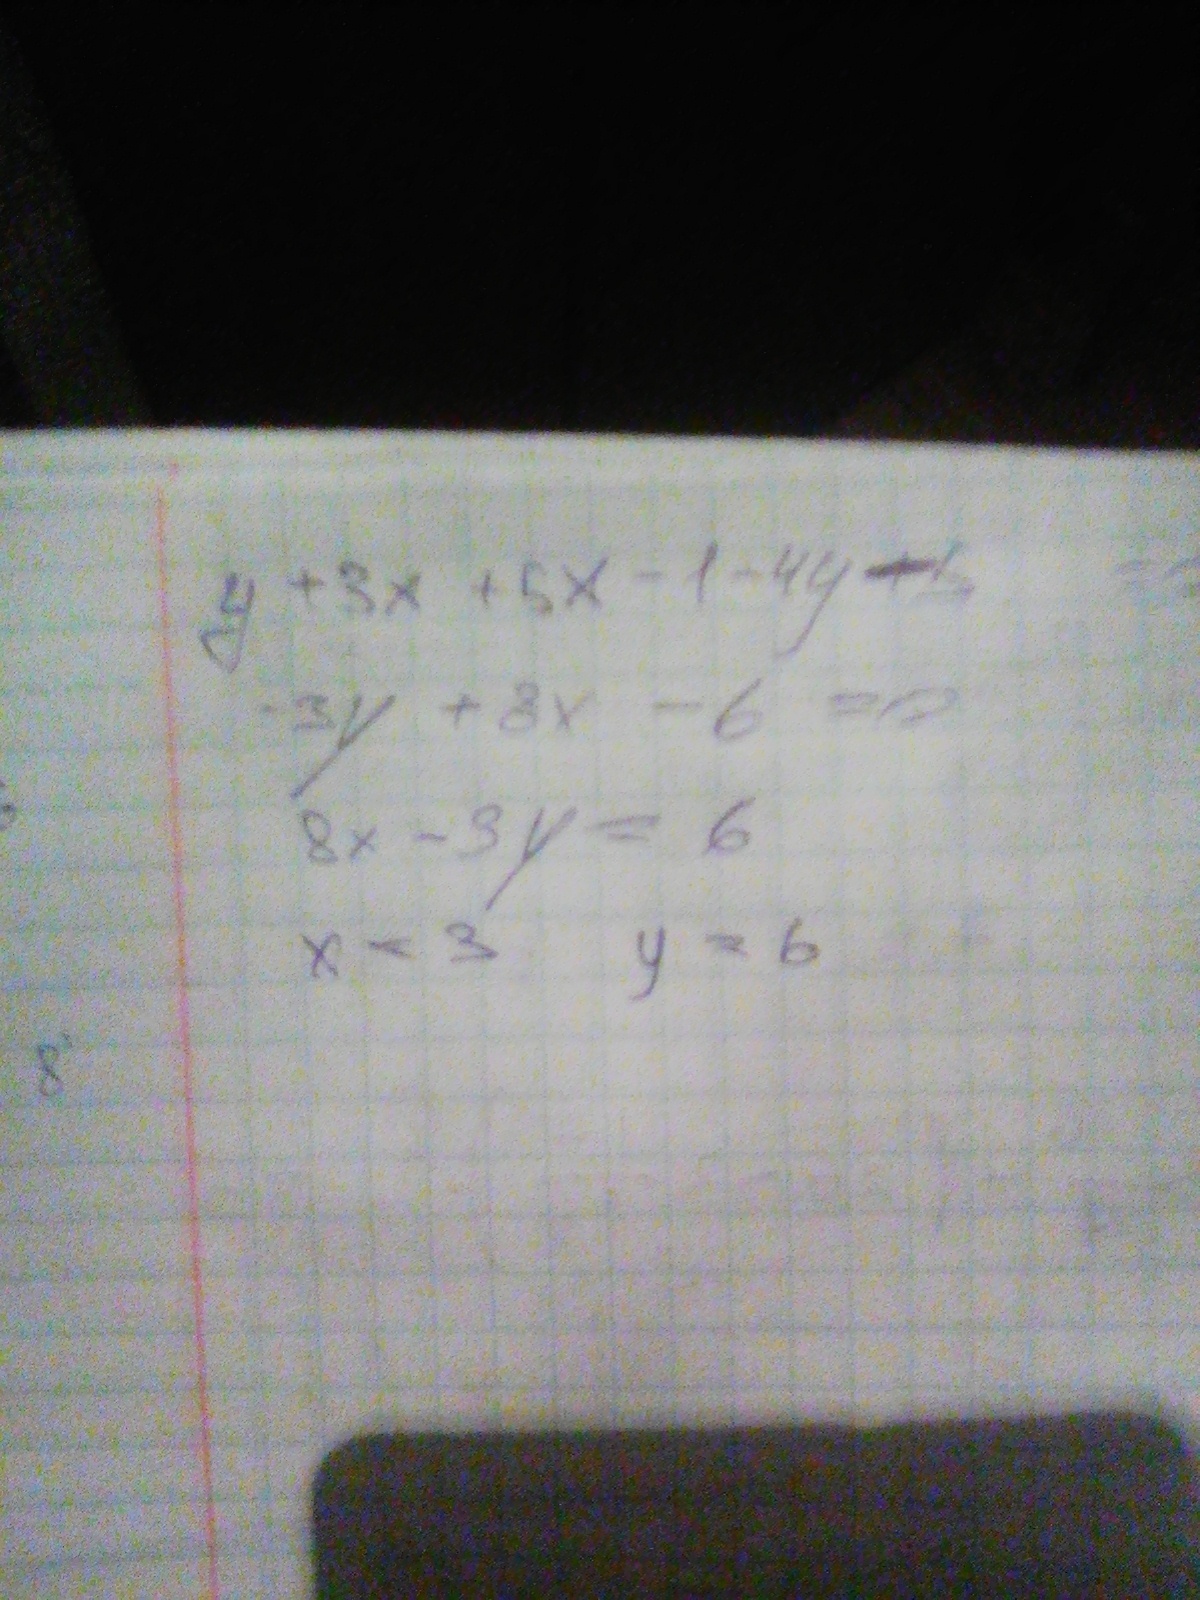 y + 3x + 5x - 1 - 4y - 5 =>
-3y + 8x - 6 =>
8x - 3y = 6
x = 3 y = 6
8